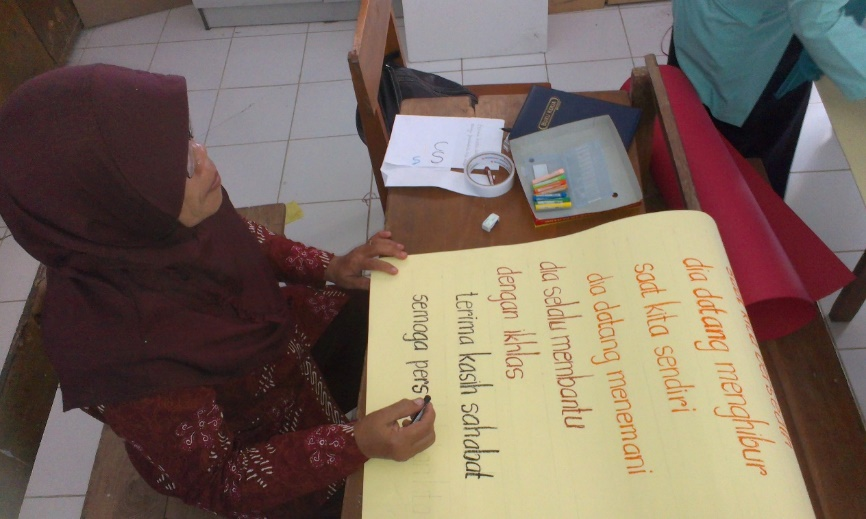 dia datang menghibur
saat kita sendiri
dia datang menemani
dia selalu membantu
dengan ikhlas
terima kasih sahabat
semoga pers